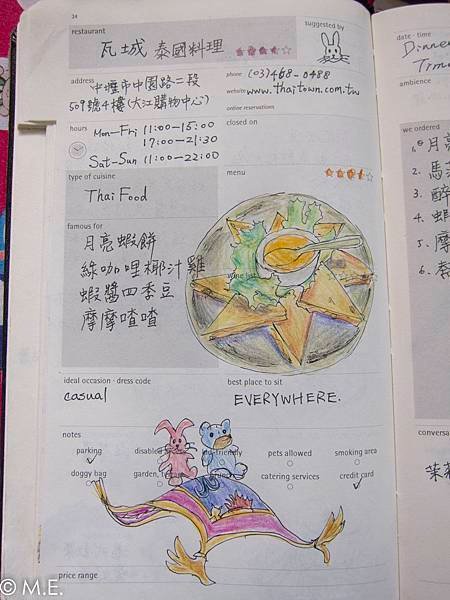 34
restaurant
瓦城 泰國料理
suggested by
address
中壢市中園路二段
509號4樓(大江購物中心)
phone (03)468-0488
website www.thaitown.com.tw
online reservations
hours
Mon-Fri 11:00-15:00
17:00-21:30
Sat-Sun 11:00-22:00
closed on
type of cuisine
Thai Food
menu
famous for
月亮蝦餅
綠咖哩椰汁雞
蝦醬四季豆
摩摩喳喳
wine list
ideal occasion · dress code
casual
best place to sit
EVERYWHERE.
notes
parking
disabled
friendly
pets allowed
smoking area
doggy bag
garden,
catering services
credit card
price range
date · time
Dinner
Time
ambience
we ordered
1. 月
2. 馬
3. 醉
4. 蝦
5. 摩
6.
conversa
茉
© M.E.